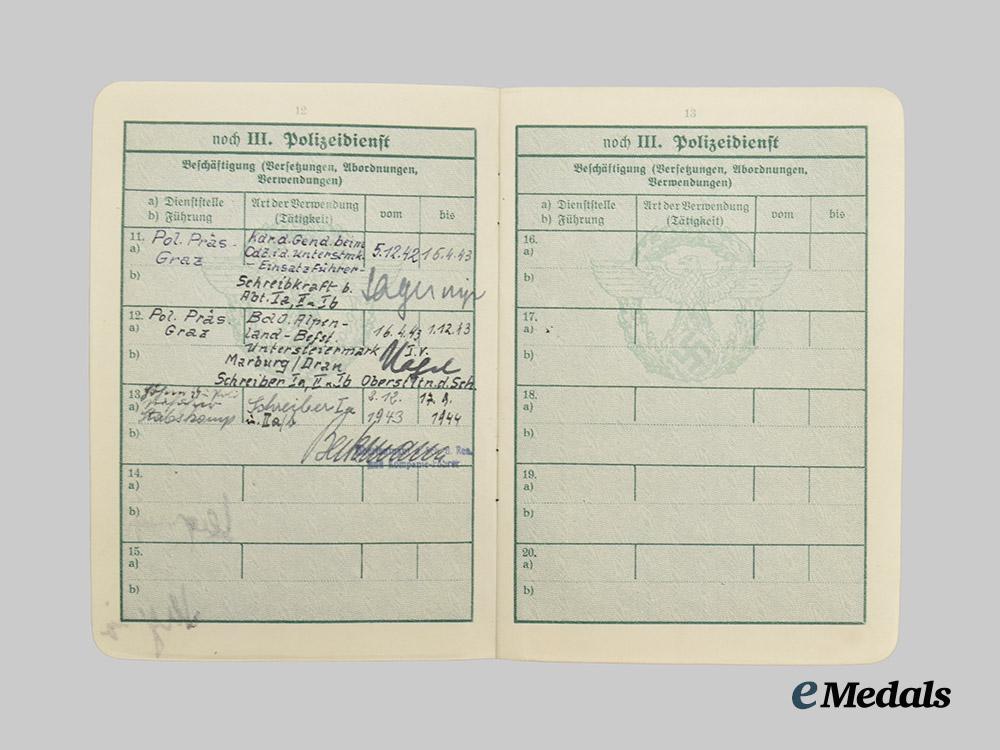 12
noch III. Polizeidienst
Beschäftigung (Versetzungen, Abordnungen,
Verwendungen)
a) Dienststelle
b) Führung
Art der Verwendung
(Tätigkeit)
vom
bis
11.
a) Pol. Präs.
Graz
b)
Kdr.d.Gend.beim
CdZ.i.d.Unterstmk.
-Einsatzführer-
Schreibkraft b.
Abt. Ia, II u. Ib
5.12.42
15.4.43
12.
a) Pol. Präs.
Graz
b)
BdO. Alpen-
land-Befst.
Untersteiermark
Marburg/Drau
Schreiber Ia, II u. Ib
16.4.43
1.12.43
I.V.
Oberstltn.d.Sch.
13.
a)
Stabskomp
b)
Schreiber Ia
u. IIa/b
2.12.
1943
17.9.
1944
Beckmann
d. Res.
und Kompanie-Führer
14.
a)
b)
15.
a)
b)
13
noch III. Polizeidienst
Beschäftigung (Versetzungen, Abordnungen,
Verwendungen)
a) Dienststelle
b) Führung
Art der Verwendung
(Tätigkeit)
vom
bis
16.
a)
b)
17.
a)
b)
18.
a)
b)
19.
a)
b)
20.
a)
b)
eMedals